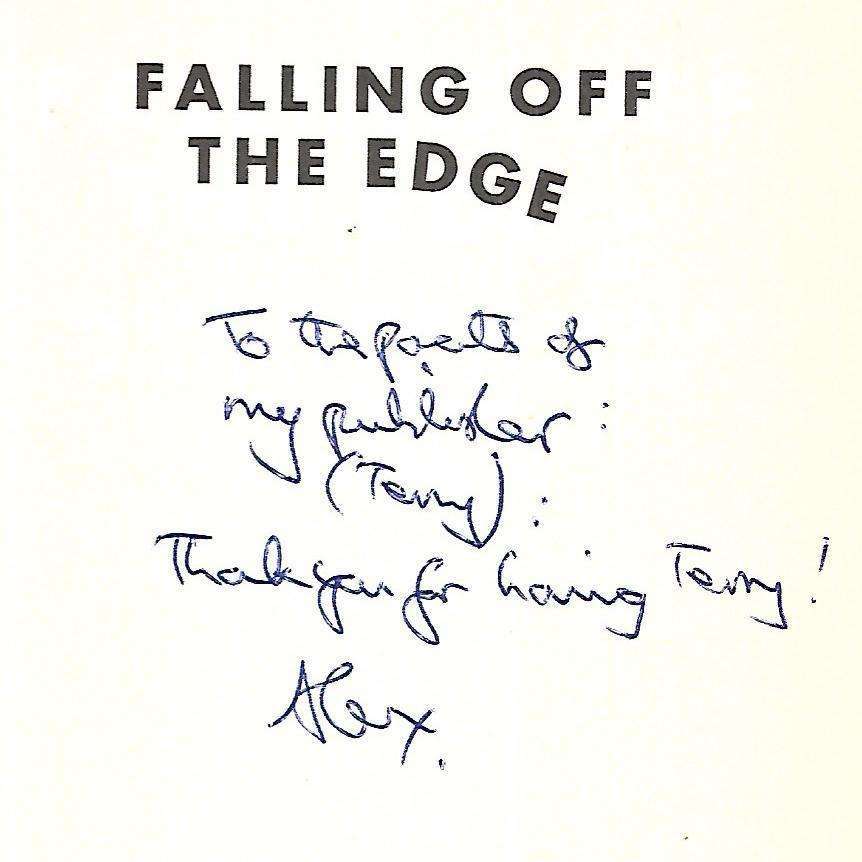 FALLING OFF
THE EDGE
To the poets of
my publisher :
(Terry) :
Thank you for having Terry!
Alex.